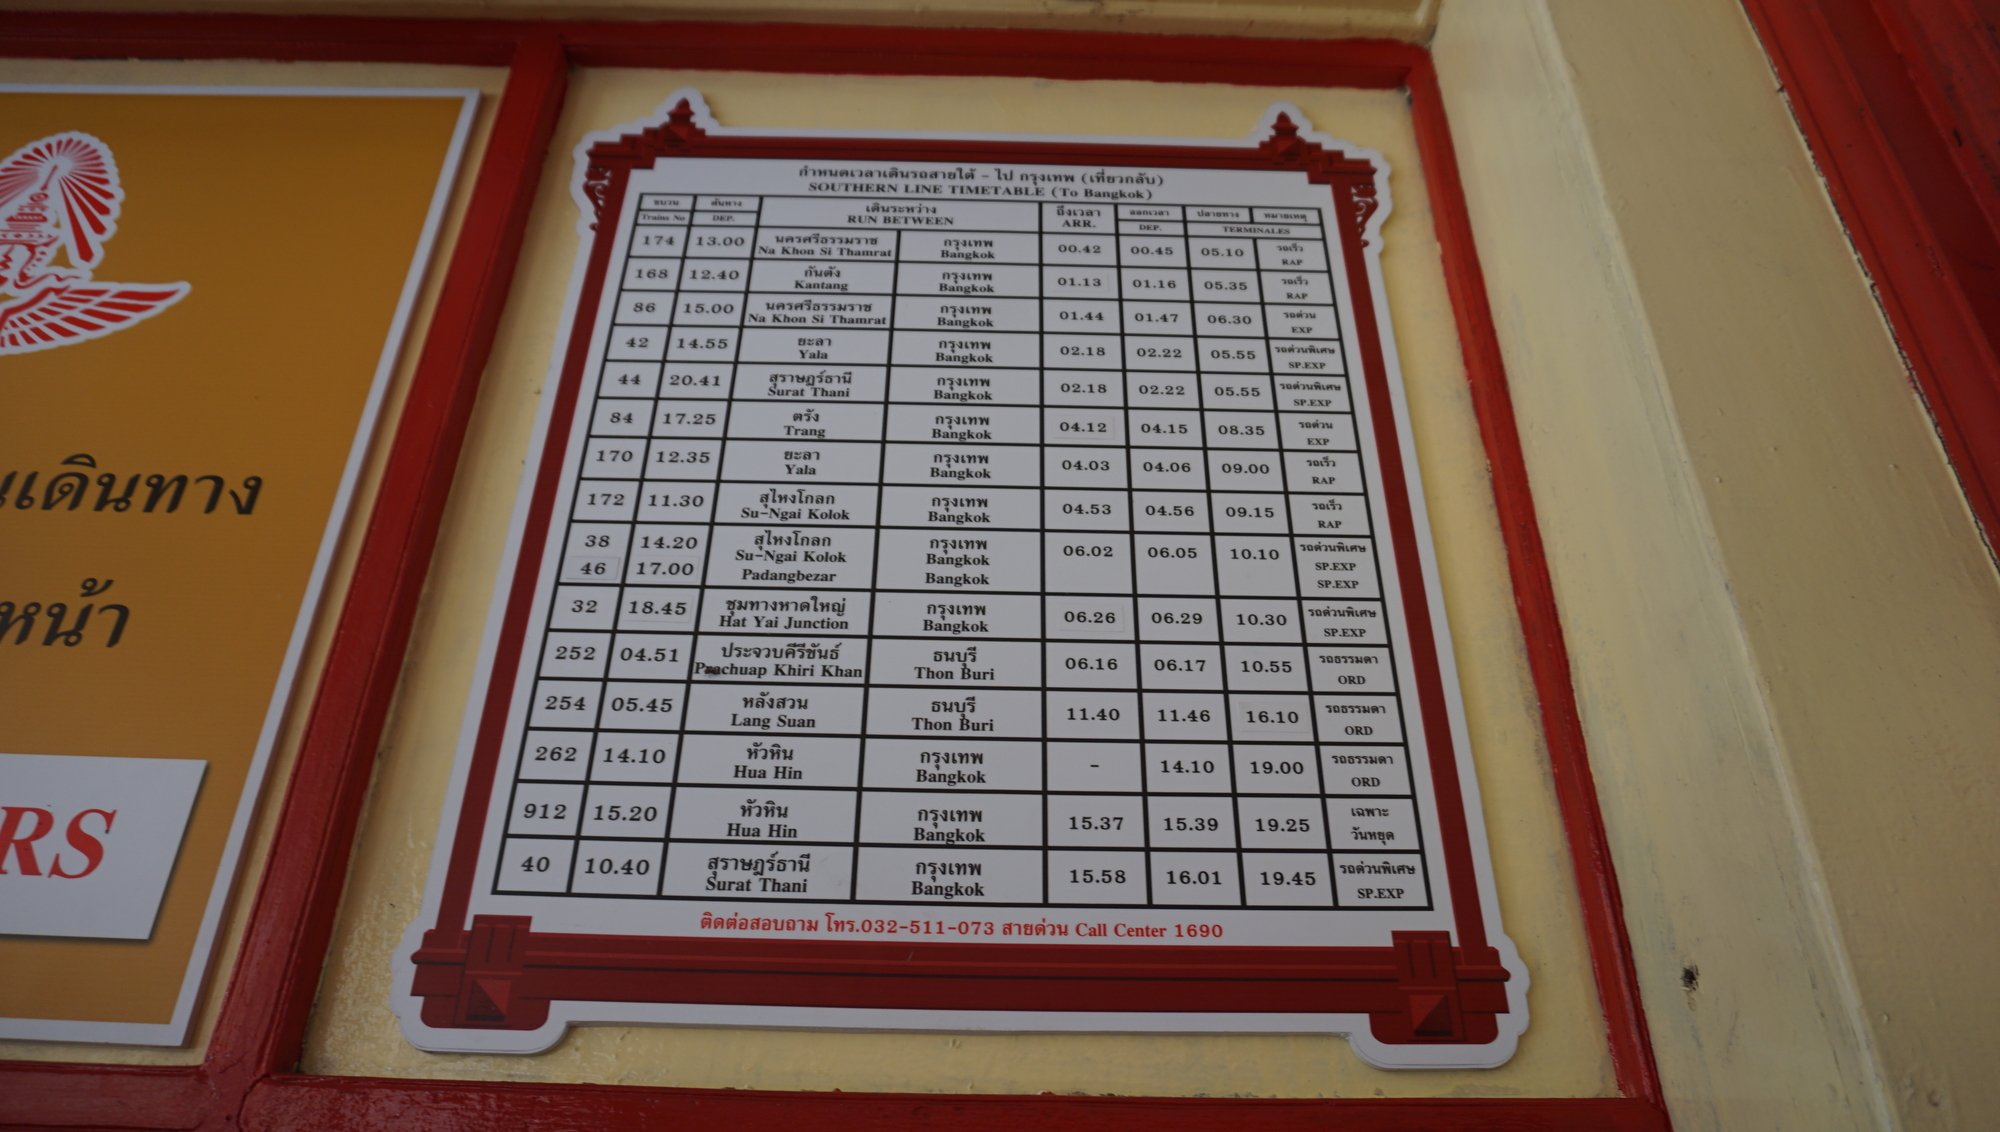 นเดินทาง
หน้า
RS
กำหนดเวลาเดินรถสายใต้ - ไป กรุงเทพ (เที่ยวกลับ)
SOUTHERN LINE TIMETABLE (To Bangkok)
ขบวน ต้นทาง เดินระหว่าง ถึงเวลา ออกเวลา ปลายทาง หมายเหตุ
Trains No DEP. RUN BETWEEN ARR. DEP. TERMINALES
174 13.00 นครศรีธรรมราช กรุงเทพ 00.42 00.45 05.10 รถเร็ว
Na Khon Si Thamrat Bangkok RAP
168 12.40 กันตัง กรุงเทพ 01.13 01.16 05.35 รถเร็ว
Kantang Bangkok RAP
86 15.00 นครศรีธรรมราช กรุงเทพ 01.44 01.47 06.30 รถด่วน
Na Khon Si Thamrat Bangkok EXP
42 14.55 ยะลา กรุงเทพ 02.18 02.22 05.55 รถด่วนพิเศษ
Yala Bangkok SP.EXP
44 20.41 สุราษฎร์ธานี กรุงเทพ 02.18 02.22 05.55 รถด่วนพิเศษ
Surat Thani Bangkok SP.EXP
84 17.25 ตรัง กรุงเทพ 04.12 04.15 08.35 รถด่วน
Trang Bangkok EXP
170 12.35 ยะลา กรุงเทพ 04.03 04.06 09.00 รถเร็ว
Yala Bangkok RAP
172 11.30 สุไหงโกลก กรุงเทพ 04.53 04.56 09.15 รถเร็ว
Su-Ngai Kolok Bangkok RAP
38 14.20 สุไหงโกลก กรุงเทพ 06.02 06.05 10.10 รถด่วนพิเศษ
Su-Ngai Kolok Bangkok SP.EXP
46 17.00 Padangbezar Bangkok SP.EXP
32 18.45 ชุมทางหาดใหญ่ กรุงเทพ 06.26 06.29 10.30 รถด่วนพิเศษ
Hat Yai Junction Bangkok SP.EXP
252 04.51 ประจวบคีรีขันธ์ ธนบุรี 06.16 06.17 10.55 รถธรรมดา
Prachuap Khiri Khan Thon Buri ORD
254 05.45 หลังสวน ธนบุรี 11.40 11.46 16.10 รถธรรมดา
Lang Suan Thon Buri ORD
262 14.10 หัวหิน กรุงเทพ - 14.10 19.00 รถธรรมดา
Hua Hin Bangkok ORD
912 15.20 หัวหิน กรุงเทพ 15.37 15.39 19.25 เฉพาะ
Hua Hin Bangkok วันหยุด
40 10.40 สุราษฎร์ธานี กรุงเทพ 15.58 16.01 19.45 รถด่วนพิเศษ
Surat Thani Bangkok SP.EXP
ติดต่อสอบถาม โทร.032-511-073 สายด่วน Call Center 1690